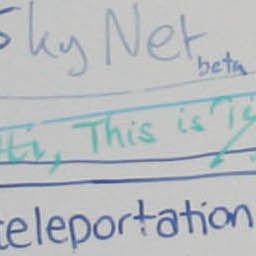 Sky Net
beta
Hi, This is
teleportation